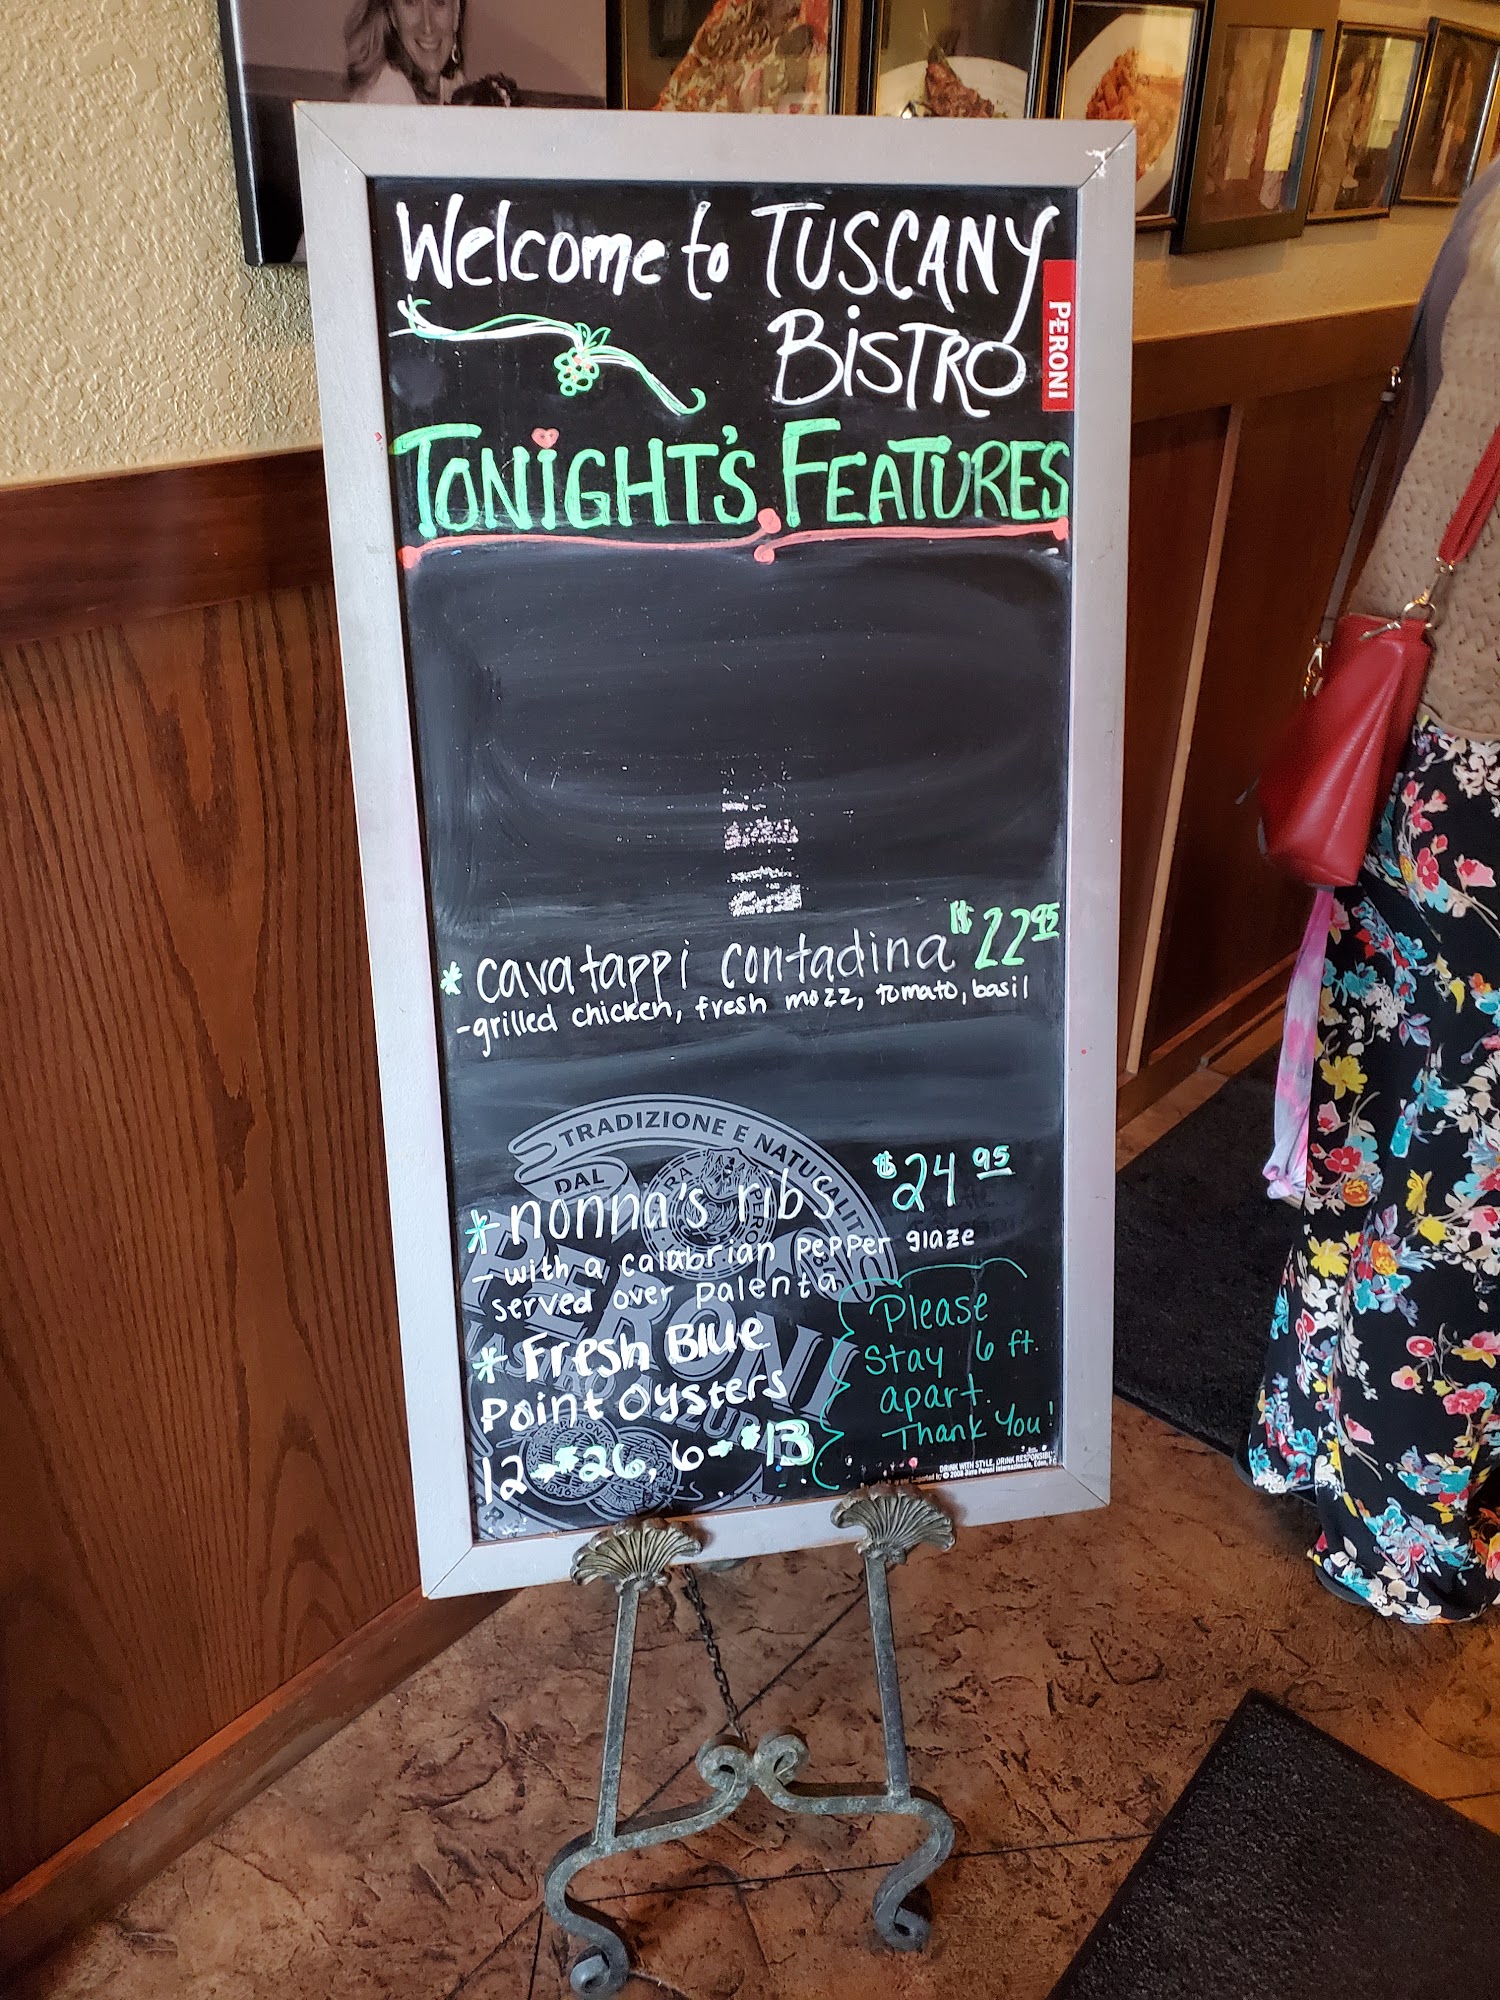 Welcome to TUSCANY
BISTRO
PERONI
TONIGHT'S FEATURES
* cavatappi contadina $22.95
- grilled chicken, fresh mozz, tomato, basil
TRADIZIONE E NATURALITÀ
DAL
* nonna's ribs $24.95
- with a calabrian pepper glaze
served over palenta
PERONI
* Fresh Blue
Point Oysters
12 → $26, 6 → $13
Please
Stay 6 ft.
apart.
Thank You!
DRINK WITH STYLE. DRINK RESPONSIBLY.